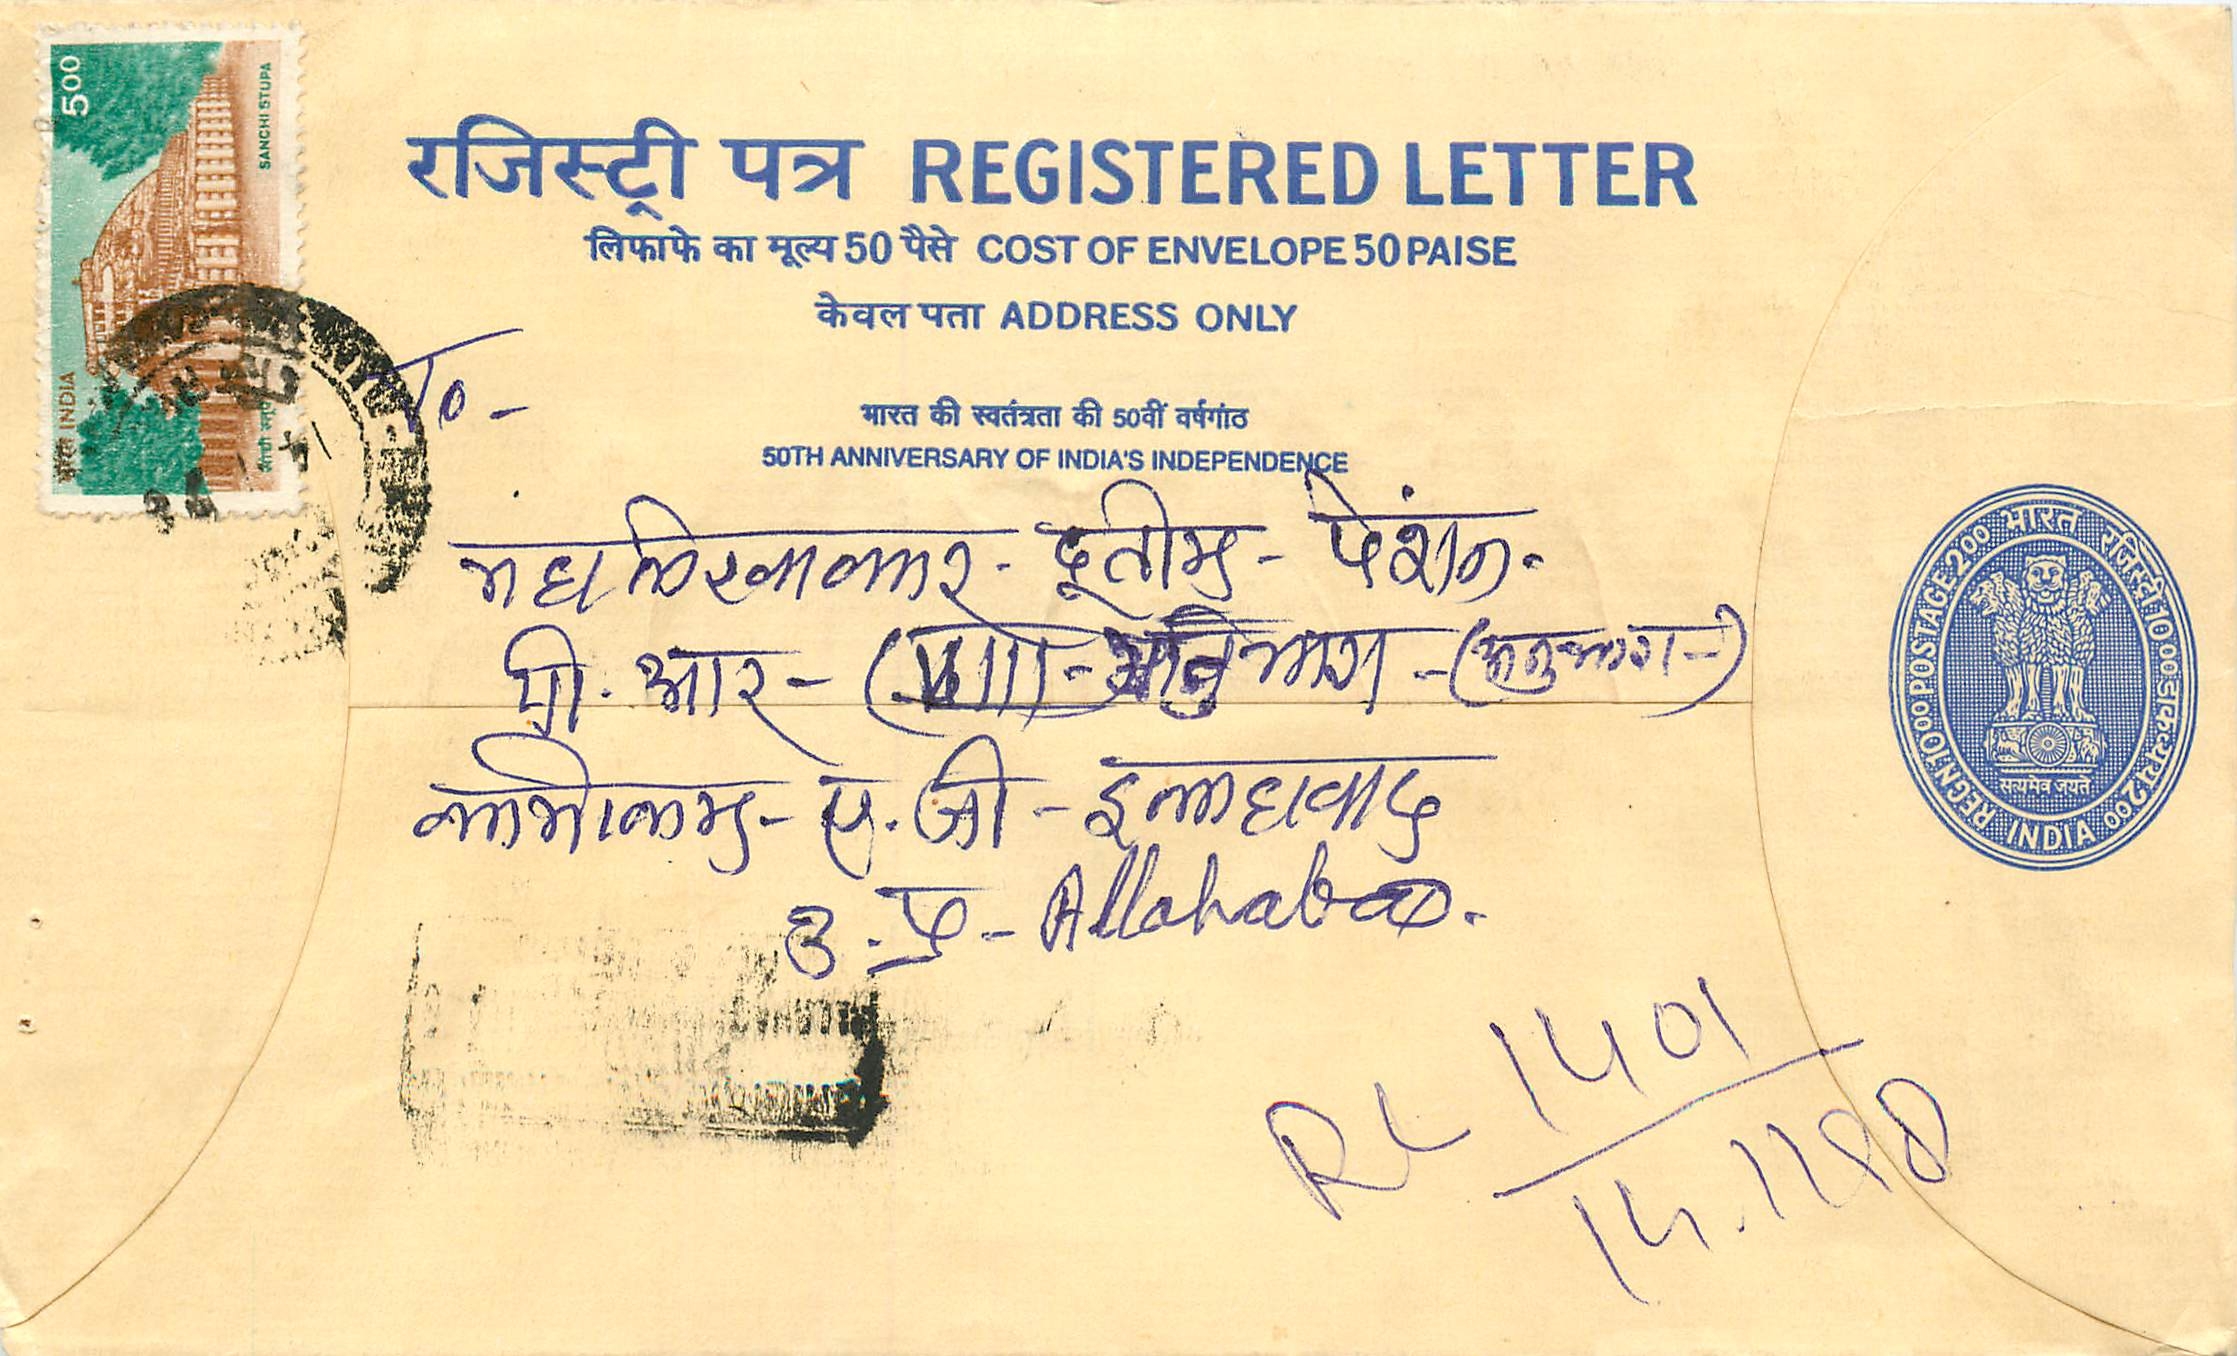 5.00
SANCHI STUPA
भारत INDIA
रजिस्ट्री पत्र REGISTERED LETTER
लिफाफे का मूल्य 50 पैसे COST OF ENVELOPE 50 PAISE
केवल पता ADDRESS ONLY
To -
भारत की स्वतंत्रता की 50वीं वर्षगांठ
50TH ANNIVERSARY OF INDIA'S INDEPENDENCE
पेंशन
पी. आर - अनुभाग - (अनुभाग -)
ए. जी - इलाहावाद
उ. प्र - Allahabad.
भारत रजिस्ट्री 1000 डाक द्रव्य 200
REGN 1000 POSTAGE 200
INDIA
सत्यमेव जयते
RL 1501